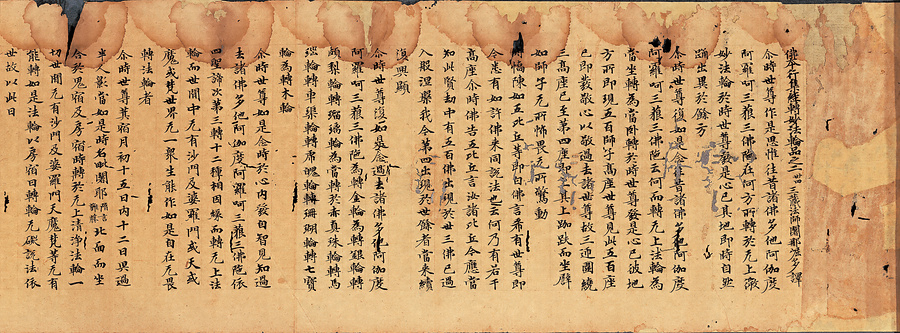 佛本行集經轉妙法輪品之一 卌四 三藏法師闍那崛多譯
尒時世尊作是思惟往昔諸佛多他阿伽度
阿羅呵三藐三佛陁在何方所轉於无上微
妙法輪於時世尊發是心已其地即時自然
踊出異於餘方
尒時世尊復如是念昔諸佛多他阿伽度
阿羅呵三藐三佛陁云何而轉无上法輪為
當坐轉為當卧轉於時世尊發是心已彼地
方所即現五百師子高座世尊見此五百座
已即敬心以敬過去諸世尊故三迊圍繞
三高座已至第四座即其上跏趺而坐辟
如師子无所怖畏无所驚動
憍陳如五比丘等即白佛言希有世尊即
今忽有如許佛來同說法也云何乃有若干
高座尒時佛告五比丘言汝諸比丘今應當
知此賢劫中有五百佛出現於世三佛已過
入般涅槃我今第四出現於世餘者當來續
復興顯
尒時世尊復如是念過去諸佛多他阿伽度
阿羅呵三藐三佛陁為轉金輪為轉銀輪轉
頗梨輪轉瑠璃輪為當轉於赤真珠輪轉馬
瑙輪轉車磲輪轉虎魄輪轉珊瑚輪轉七寶
輪為轉木輪
尒時世尊如是念時於心內發自智見知過
去諸佛多他阿伽度阿羅呵三藐三佛陁依
四聖諦次第三轉十二種相因緣而轉无上法
輪而世間中无有沙門及婆羅門或天或
魔或梵世界无一衆生能作如是自在无畏
轉法輪者
尒時世尊箕宿月初十五日內十二日與過
半人影當如是時名毗闍耶 北面而坐
合於鬼宿及房宿時轉於无上清淨法輪一
切世間无有沙門及婆羅門天魔梵等无有
能轉如是法輪以房宿日轉輪无礙說法依
世故以此日